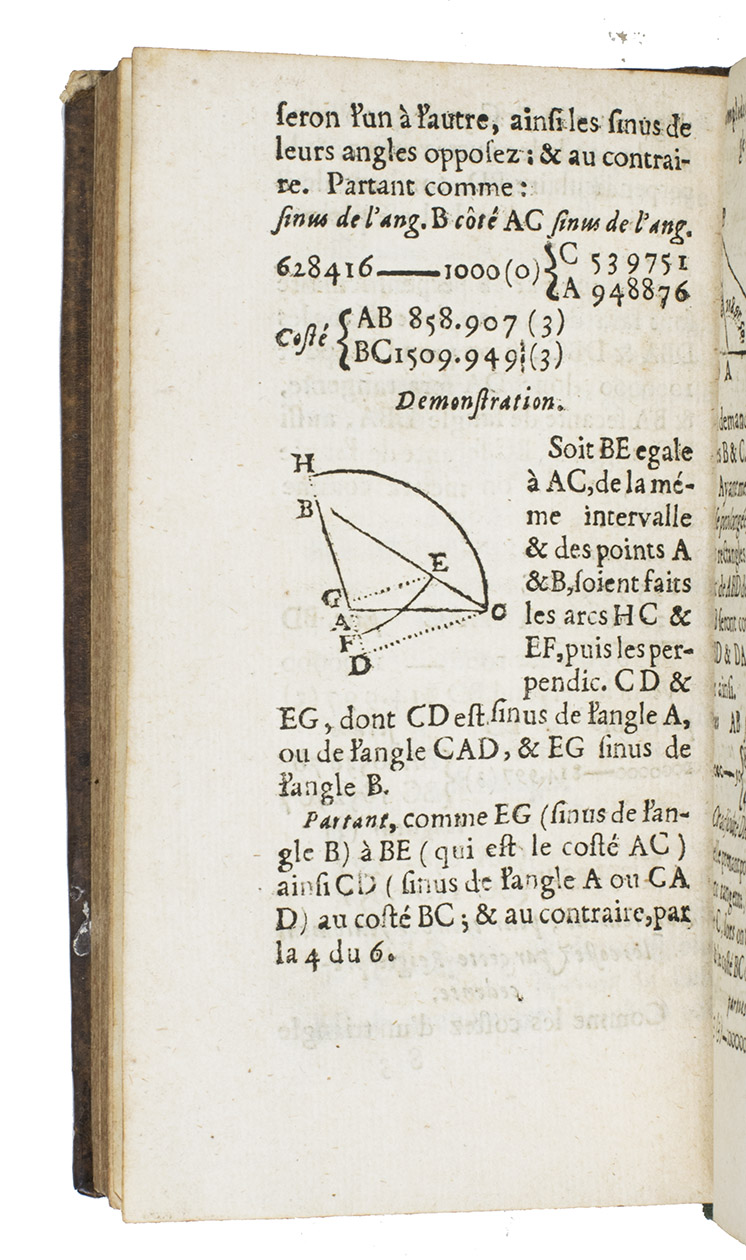 ſeron l'un à l'autre, ainſi les ſinus de
leurs angles oppoſez : & au contrai-
re. Partant comme :
ſinus de l'ang. B côté AC ſinus de l'ang.
628416——1000(0){C 539751
{A 948876
Coſté {AB 858.907 (3)
{BC 1509.949 (3)
Demonſtration.
Soit BE egale
à AC, de la mé-
me intervalle
& des points A
& B, ſoient faits
les arcs H C &
EF, puis les per-
pendic. C D &
H
B
E
G
A
C
F
D
EG, dont CD eſt ſinus de l'angle A,
ou de l'angle CAD, & EG ſinus de
l'angle B.
Partant, comme EG (ſinus de l'an-
gle B) à BE ( qui eſt le coſté AC )
ainſi CD ( ſinus de l'angle A ou CA
D) au coſté BC ; & au contraire, par
la 4 du 6.
A